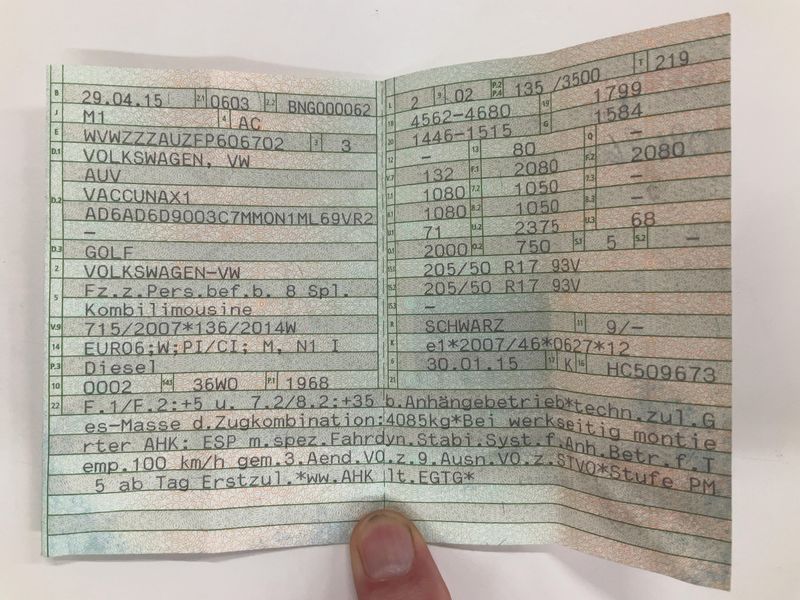 B 29.04.15 2.1 0603 2.2 BNG000062
J M1 4 AC
E WVWZZZAUZFP606702 3 3
D.1 VOLKSWAGEN, VW
AUV
D.2 VACCUNAX1
AD6AD6D9003C7MMON1ML69VR2
–
D.3 GOLF
2 VOLKSWAGEN-VW
5 Fz.z.Pers.bef.b. 8 Spl.
Kombilimousine
V.9 715/2007*136/2014W
14 EURO6;W;PI/CI; M, N1 I
P.3 Diesel
10 0002 14.1 36W0 P.1 1968
L 2 9 02 P.2 P.4 135 /3500 T 219
18 4562-4680 19 1799
20 1446-1515 G 1584
12 – 13 80 Q –
V.7 132 F.1 2080 F.2 2080
7.1 1080 7.2 1050 7.3 –
8.1 1080 8.2 1050 8.3 –
U.1 71 U.2 2375 U.3 68
O.1 2000 O.2 750 S.1 5 S.2 –
15.1 205/50 R17 93V
15.2 205/50 R17 93V
15.3 –
R SCHWARZ 11 9/–
K e1*2007/46*0627*12
6 30.01.15 17 K 16 HC509673
21
22 F.1/F.2:+5 u. 7.2/8.2:+35 b.Anhängebetrieb*techn.zul.G
es-Masse d.Zugkombination:4085kg*Bei werkseitig montie
rter AHK: ESP m.spez.Fahrdyn.Stabi.Syst.f.Anh.Betr.f.T
emp.100 km/h gem.3.Aend.VO.z.9.Ausn.VO.z.STVO*Stufe PM
5 ab Tag Erstzul.*ww.AHK lt.EGTG*